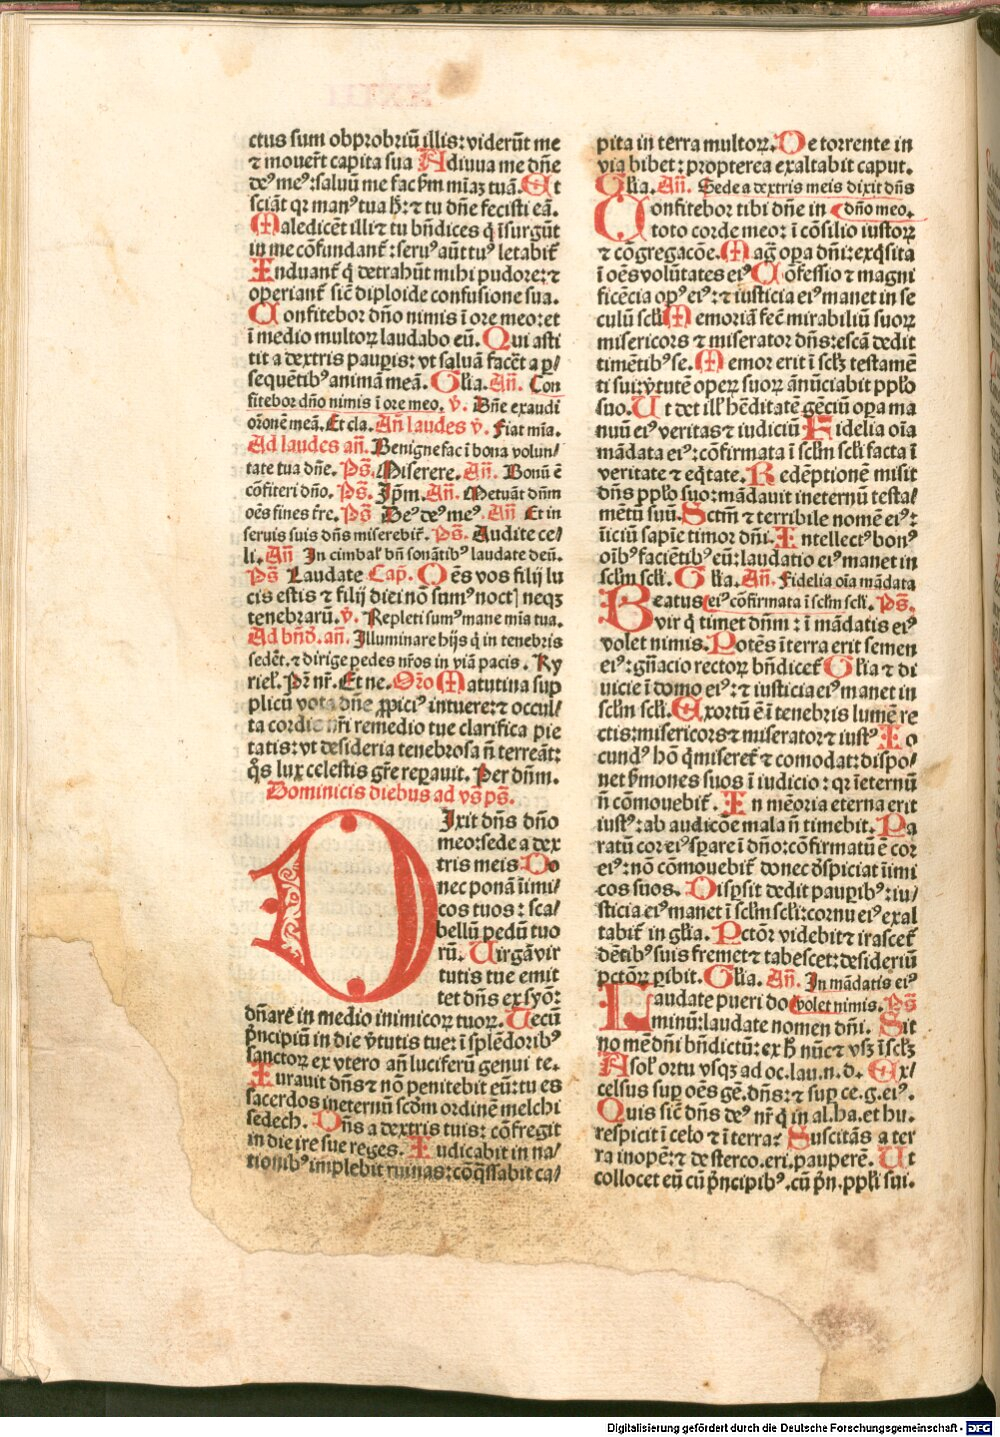 ctus sum obprobriū illis: viderūt me
⁊ mouer̄t capita sua Adiuua me dn̄e
de⁹ me⁹: saluū me fac ẜm mīaꝫ tuā. Et
sciāt qꝛ man⁹ tua h̄: ⁊ tu dn̄e fecisti eā.
Maledicēt illi ⁊ tu bn̄dices q̇ īsurgūt
in me cōfundant̄: seru⁹ aūt tu⁹ letabit̄
Induant̄ q̇ detrahūt mihi pudore: ⁊
operiant̄ sic̄ diploide confusione sua.
Confitebor dn̄o nimis ī ore meo: et
ī medio multoꝝ laudabo eū. Qui asti
tit a dextris pauꝑis: vt saluā facēt a ꝑ/
sequētib⁹ animā meā. Gl̄ia. Añ. Con
fitebor dn̄o nimis ī ore meo. v̄. Dn̄e exaudi
or̄onē meā. Et cla. Añ laudes v̄. Fiat mīa.
Ad laudes añ. Benigne fac ī bona volun/
tate tua dn̄e. Ps̄. Miserere. Añ. Bonū ē
cōfiteri dn̄o. Ps̄. Jp̄m. Añ. Metuāt dn̄m
oēs fines t̄re. Ps̄ De⁹ de⁹ me⁹. Añ Et in
seruis suis dn̄s miserebit̄. Ps̄. Audite ce/
li. Añ In cimbal̄ bn̄ sonātib⁹ laudate deū.
Ps̄ Laudate Cap̄. Oēs vos filij lu
cis estis ⁊ filij diei nō sum⁹ noctꝭ neqꝫ
tenebrarū. v̄. Repleti sum⁹ mane mīa tua.
Ad bn̄d̄. añ. Illuminare hijs q̇ in tenebris
sedēt. ⁊ dirige pedes nr̄os in viā pacis. Ky
riel̄. Pr̄ nr̄. Et ne. Or̄o Matutina sup
plicū vota dn̄e ꝓpici⁹ intuere: ⁊ occul/
ta cordis nr̄i remedio tue clarifica pie
tatis: vt desideria tenebrosa n̄ terreāt:
q̊s lux celestis gr̄e reꝑauit. Per dn̄m.
Dominicis diebus ad vs̄ ps̄.
DIxit dn̄s dn̄o
meo: sede a dex
tris meis. Do
nec ponā īimi/
cos tuos: sca/
bellū pedū tuo
rū. Uirgā vir
tutis tue emit
tet dn̄s ex syō:
dn̄are in medio inimicoꝝ tuoꝝ. Tecū
pn̄cipiū in die v̓tutis tue: ī splēdorib⁹
sanctoꝝ ex vtero an̄ luciferū genui te.
Iurauit dn̄s ⁊ nō penitebit eū: tu es
sacerdos ineternū scd̄m ordinē melchi
sedech. Dn̄s a dextris tuis: cōfregit
in die ire sue reges. Iudicabit in na/
tionib⁹ implebit ruinas: cōq̊ssabit ca/
pita in terra multoꝝ. De torrente in
via bibet: propterea exaltabit caput.
Gl̄ia. Añ. Sede a dextris meis dixit dn̄s
Confitebor tibi dn̄e in dn̄o meo.
toto corde meo: ī cōsilio iustoꝝ
⁊ cōgregacōe. Maḡ oꝑa dn̄i: exq̇sita
ī oēs volūtates ei⁹ Cōfessio ⁊ magni
ficēcia op⁹ ei⁹: ⁊ iusticia ei⁹ manet in se
culū scl̄i Memoriā fec̄ mirabiliū suoꝝ
misericors ⁊ miserator dn̄s: escā dedit
timētib⁹ se. Memor erit ī scl̄ꝫ testamē
ti sui: v̓tutē operꝭ suoꝝ an̄ūciabit ppl̄o
suo. Ut det ill̄ hēditatē gēciū oꝑa ma
nuū ei⁹ veritas ⁊ iudiciū Fidelia oīa
mādata ei⁹: cōfirmata ī scl̄m scl̄i facta ī
veritate ⁊ eq̇tate. Redēptionē misit
dn̄s ppl̄o suo: mādauit ineternū testa/
mētū suū. Sctm̄ ⁊ terribile nomē ei⁹:
īiciū sapīe timor dn̄i. Intellect⁹ bon⁹
oīb⁹ faciētib⁹ eū: laudatio ei⁹ manet in
scl̄m scl̄i. Gl̄ia. Añ. Fidelia oīa mādata
Beatus ei⁹ cōfirmata ī scl̄m scl̄i. Ps̄.
vir q̇ timet dn̄m: ī mādatis ei⁹
volet nimis. Potēs ī terra erit semen
ei⁹: gn̄acio rectoꝝ bn̄dicet̄ Gl̄ia ⁊ di
uicie ī domo ei⁹: ⁊ iusticia ei⁹ manet in
scl̄m scl̄i. Exortū ē ī tenebris lumē re
ctis: misericors ⁊ miserator ⁊ iust⁹ Io
cund⁹ hō q̇ miseret̄ ⁊ comodat: dispo/
net ẜmones suos ī iudicio: qꝛ ieternū
n̄ cōmouebit̄. In mēoria eterna erit
iust⁹: ab audicōe mala n̄ timebit. Pa
ratū cor ei⁹ sꝑare ī dn̄o: cōfirmatū ē cor
ei⁹: nō cōmouebit̄ donec dꝭspiciat īimi
cos suos. Disꝑsit dedit pauꝑib⁹: iu/
sticia ei⁹ manet ī scl̄m scl̄i: cornu ei⁹ exal
tabit̄ in gl̄ia. Pctōr videbit ⁊ irascet̄
dētib⁹ suis fremet ⁊ tabescet: desideriū
pctōꝝ ꝑibit. Gl̄ia. Añ. In mādatis ei⁹
Laudate pueri do volet nimis. Ps̄
minū: laudate nomen dn̄i. Sit
nomē dn̄i bn̄dictū: ex h̄ nūc ⁊ vsꝫ ī scl̄ꝫ
A sol̄ ortu vsqꝫ ad oc. lau. n. d. Ex/
celsus suꝑ oēs gē. dn̄s: ⁊ suꝑ ce. g. ei⁹.
Quis sic̄ dn̄s de⁹ nr̄ q̇ in al. ha. et hu.
respicit ī celo ⁊ ī terra? Suscitās a ter
ra inopē: ⁊ de sterco. eri. pauperē. Ut
collocet eū cū pn̄cipib⁹. cū pn̄. ppl̄i sui.
Digitalisierung gefördert durch die Deutsche Forschungsgemeinschaft - DFG